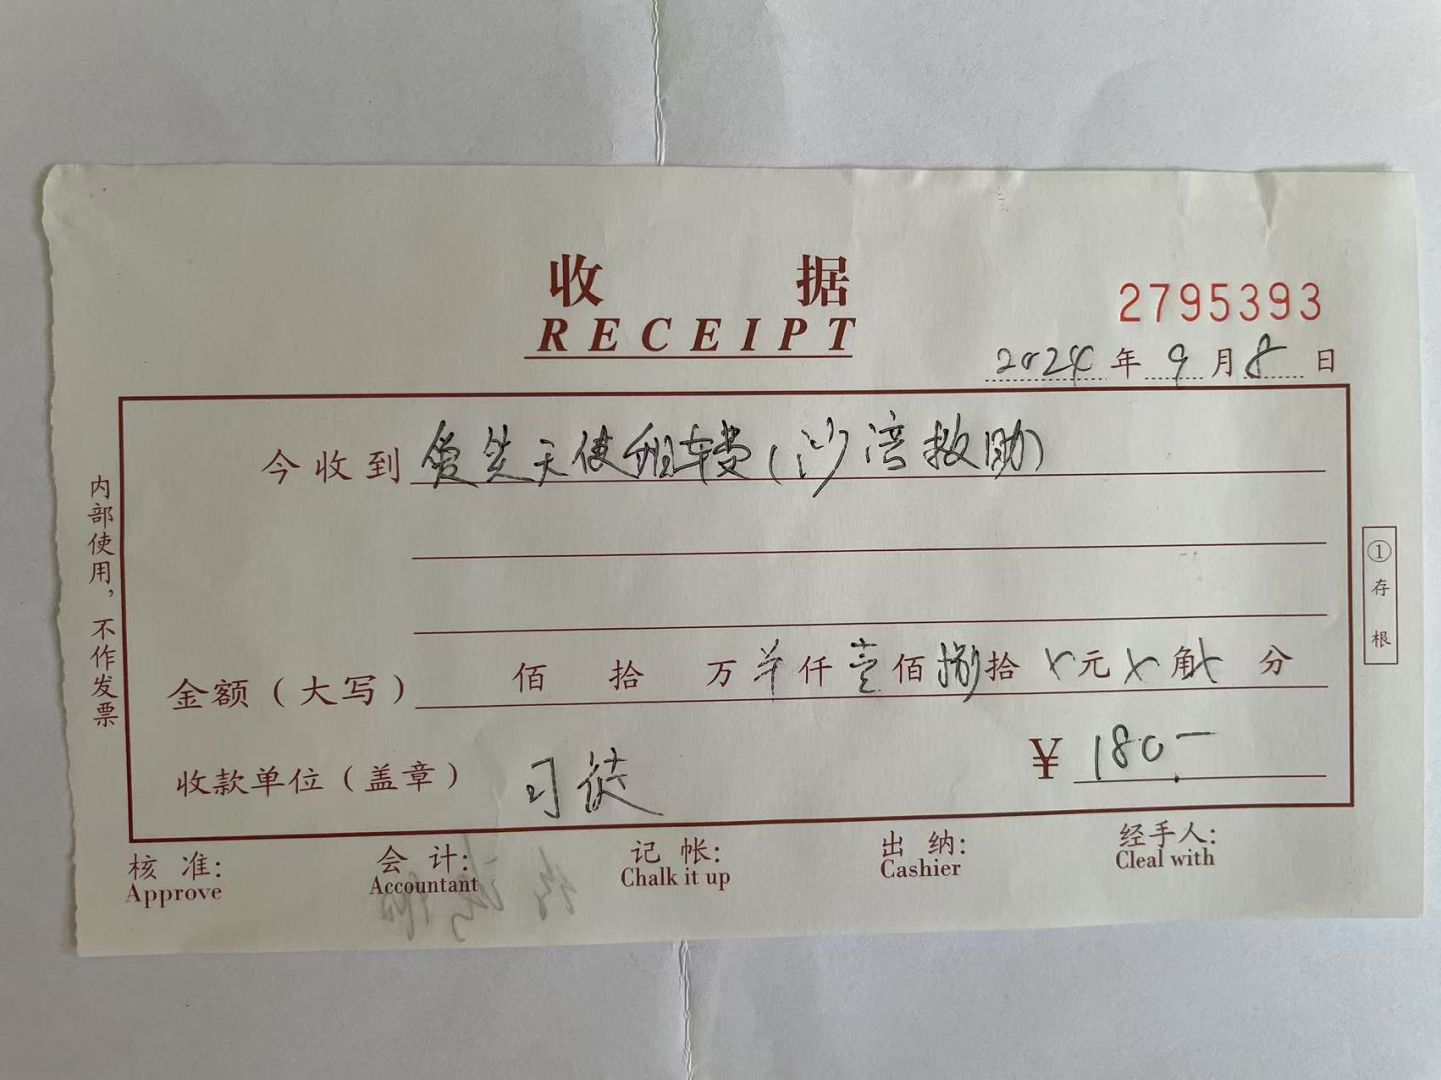 收 据
RECEIPT
2795393
2024 年 9 月 8 日
今收到 爱笑天使租车费(沙湾救助)
金额（大写） 佰 拾 万 羊 仟 壹 佰 捌 拾 X 元 X 角 X 分
收款单位（盖章） 司徒 ¥ 180.-
核 准: 会 计: 记 帐: 出 纳: 经手人:
Approve Accountant Chalk it up Cashier Cleal with
内部使用，不作发票
①存根